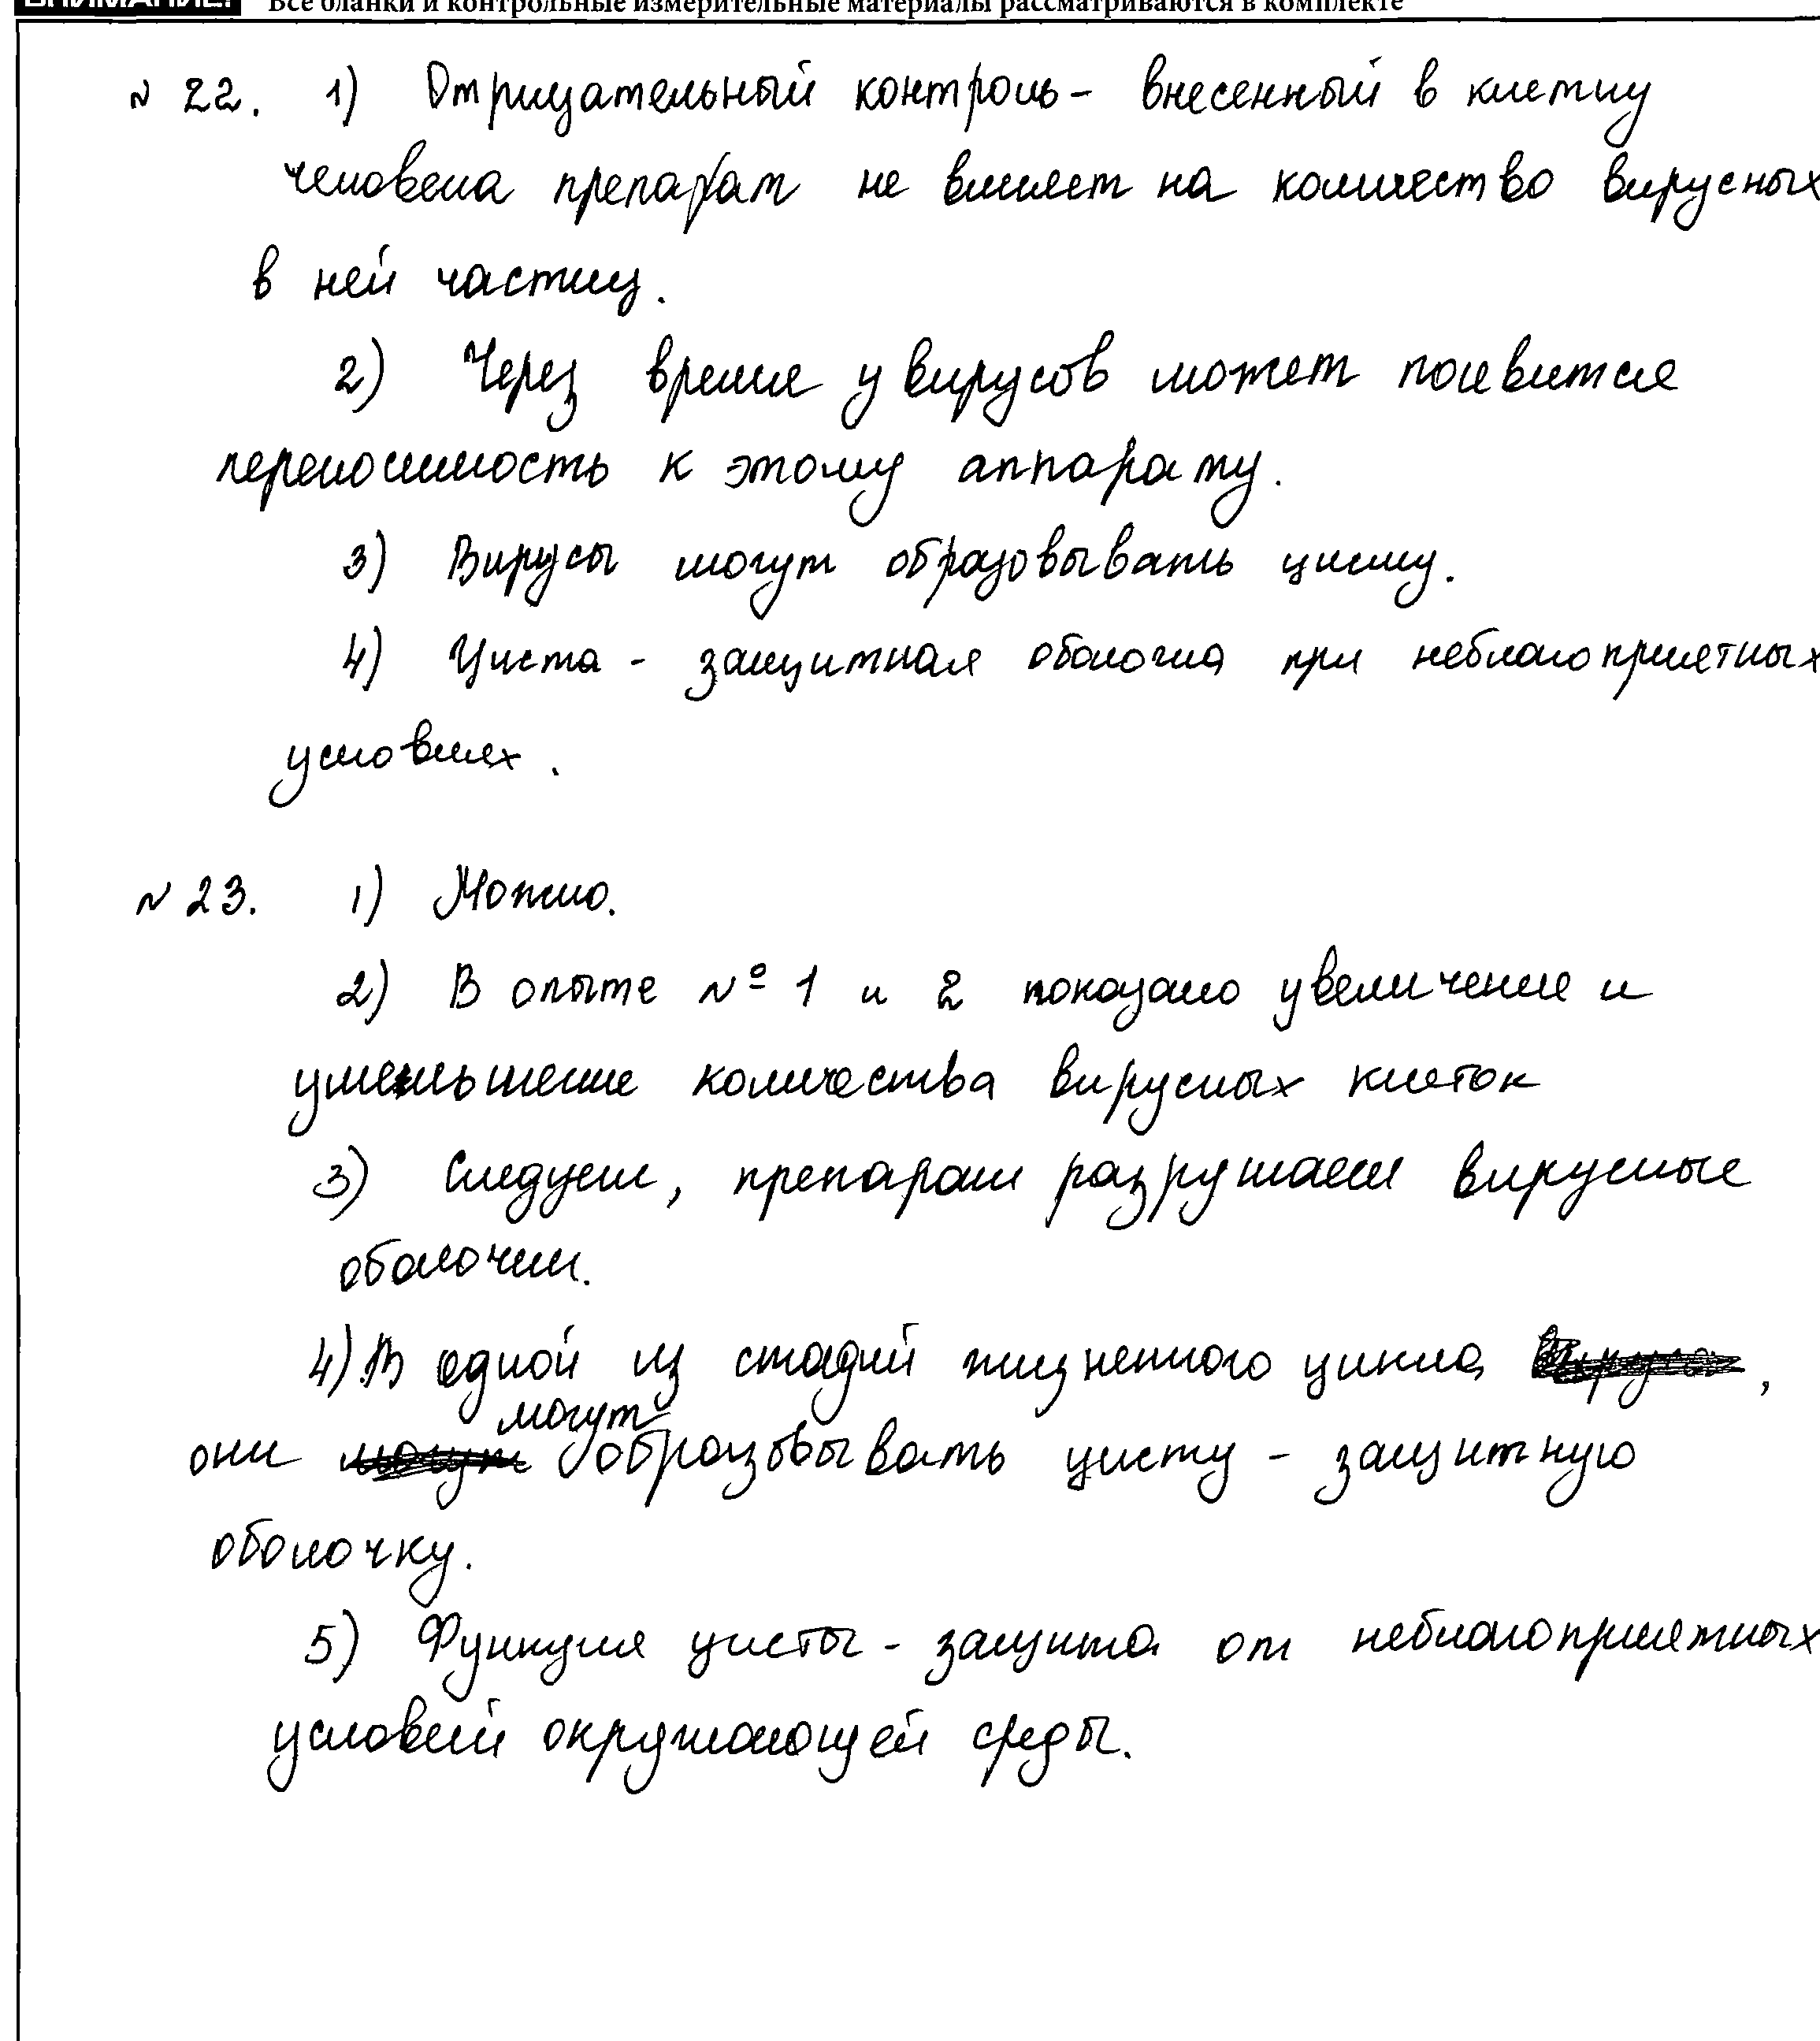 ВНИМАНИЕ! Все бланки и контрольные измерительные материалы рассматриваются в комплекте
№ 22. 1) Отрицательный контроль - внесенный в клетку
человека препарат не влияет на количество вирусных
в ней частиц.
2) Через время у вирусов может появится
переносимость к этому аппарату.
3) Вирусы могут образовывать цисту.
4) Циста - защитная оболочка при неблагоприятных
условиях.
№ 23. 1) Можно.
2) В опыте № 1 и 2 показано увеличение и
уменьшение количества вирусных клеток
3) Следует, препарат разрушает вирусные
оболочки.
4) В одной из стадий жизненного цикла,
они могут образовывать цисту - защитную
оболочку.
5) Функция цисты - защита от неблагоприятных
условий окружающей среды.